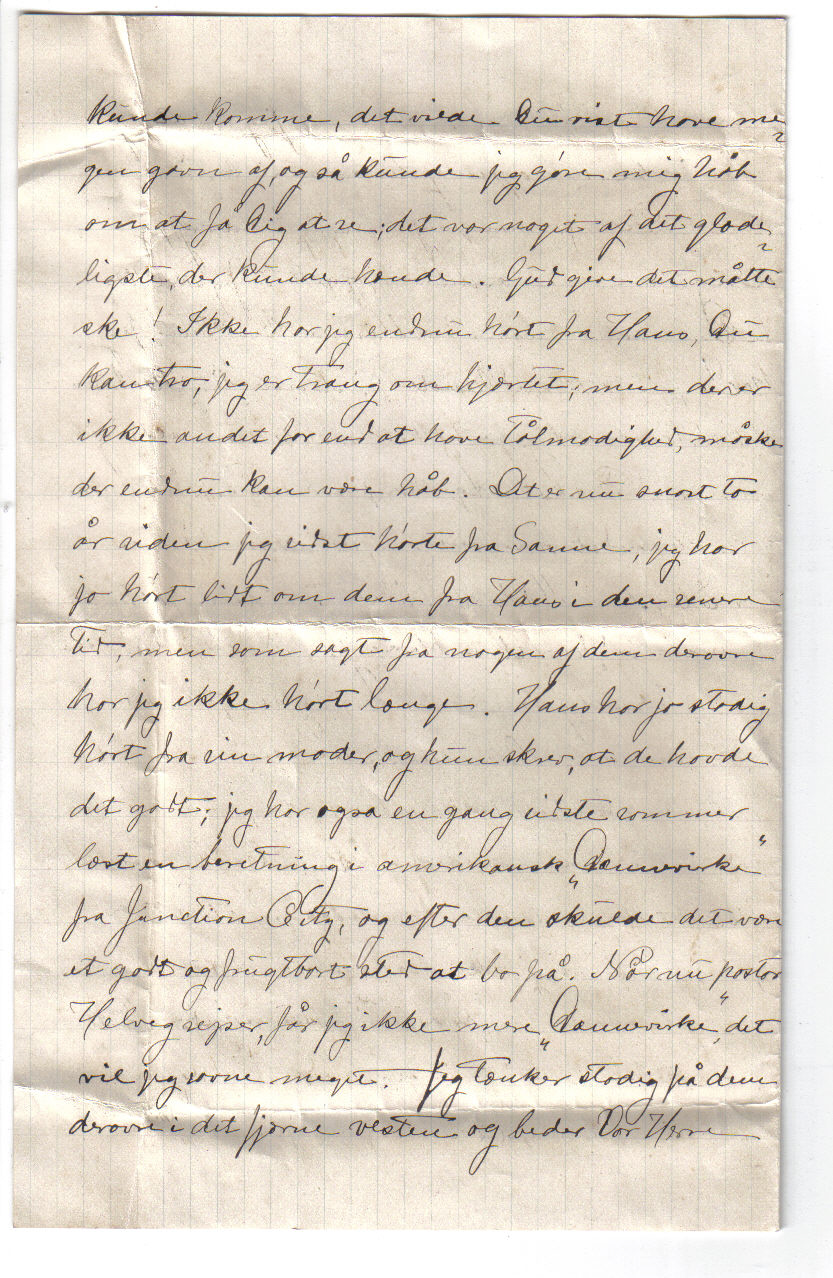 kunde komme, det vilde Du vist have me-
gen gavn af, og så kunde jeg gøre mig håb
om at få Dig at se; det var noget af det glæde-
ligste, der kunde hænde. Gud give det måtte
ske! Ikke har jeg endnu hørt fra Hans, Du
kan tro, jeg er trang om hjærtet; men der er
ikke andet for end at have tålmodighed, måske
der endnu kan være håb. Det er nu snart to
år siden jeg sidst hørte fra Sanne, jeg har
jo hørt lidt om dem fra Hans i den senere
tid, men som sagt fra nogen af dem derovre
har jeg ikke hørt længe. Hans har jo stadig
hørt fra sin moder, og hun skrev, at de havde
det godt; jeg har også en gang sidste sommer
læst en beretning i amerikansk „Dannevirke"
fra Junction City, og efter den skulde det være
et godt og frugtbart sted at bo på. Når nu pastor
Helveg rejser, får jeg ikke mere „Dannevirke", det
vil jeg savne meget. Jeg tænker stadig på dem
derovre i det fjærne vesten og beder Vor Herre